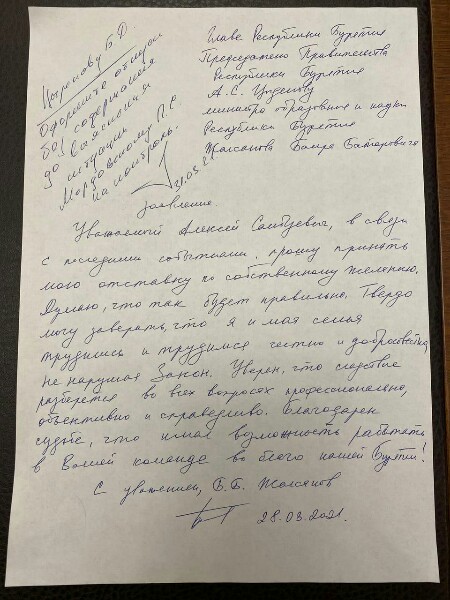 Главе Республики Бурятия
Председателю Правительства
Республики Бурятия
А.С. Цыденову
министра образования и науки
Республики Бурятия
Жалсанова Баира Баторовича
Цыренову Б.Д.
Оформите отпуск
без содержания
до выяснения
ситуации
Мордовскому П.С.
на контроль.
31.03.21
Заявление.
Уважаемый Алексей Самбуевич, в связи
с последними событиями, прошу принять
мою отставку по собственному желанию.
Думаю, что так будет правильно. Твердо
могу заверить, что я и моя семья
трудились и трудимся честно и добросовестно,
не нарушая Закон. Уверен, что следствие
разберется во всех вопросах профессионально,
объективно и справедливо. Благодарен
судьбе, что имел возможность работать
в Вашей команде во благо нашей Бурятии!
С уважением, Б.Б. Жалсанов
28.03.2021.